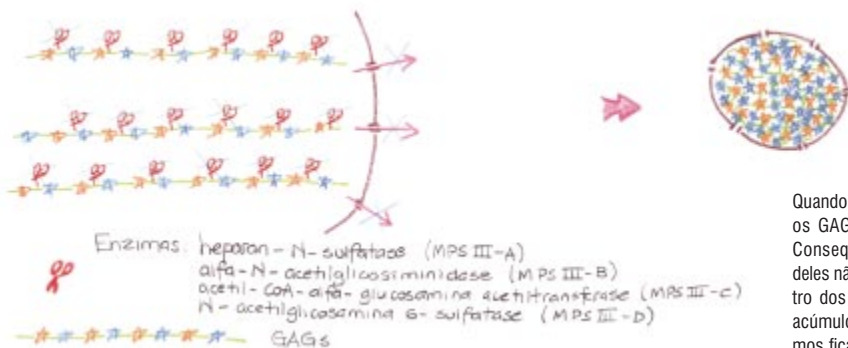 Enzimas: heparan-N-sulfatase (MPS III-A)
alfa-N-acetilglicosiminidase (MPS III-B)
acetil-CoA-alfa-glucosamina acetiltransferase (MPS III-C)
N-acetilglicosamina 6-sulfatase (MPS III-D)
GAGs
Quando
os GAG
Conseq
deles nã
tro dos
acúmulo
mos fica